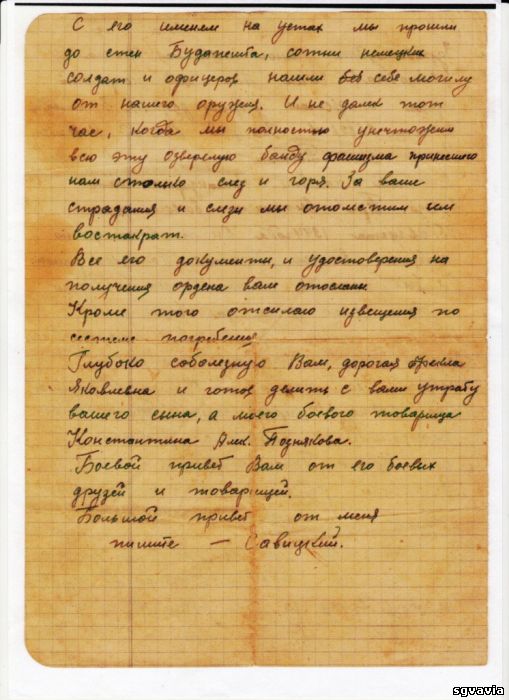 С его именем на устах мы прошли
до стен Будапешта, сотни немецких
солдат и офицеров нашли себе могилу
от нашего оружия. И не далек тот
час, когда мы полностью уничтожим
всю эту озверелую банду фашизма принесшего
нам столько слез и горя. За ваши
страдания и слезы мы отомстим им
востократ.
Все его документы, и удостоверения на
получения ордена вам отосланы.
Кроме того отсилаю извещения по
погребения
Глубоко соболезную Вам, дорогая Фекла
Яковлевна и готов делить с вами утрату
вашего сына, а моего боевого товарища
Константина Алек. Познякова.
Боевой привет Вам от его боевых
друзей и товарищей.
Большой привет от меня
пишите — Савицкий.
sgvavia